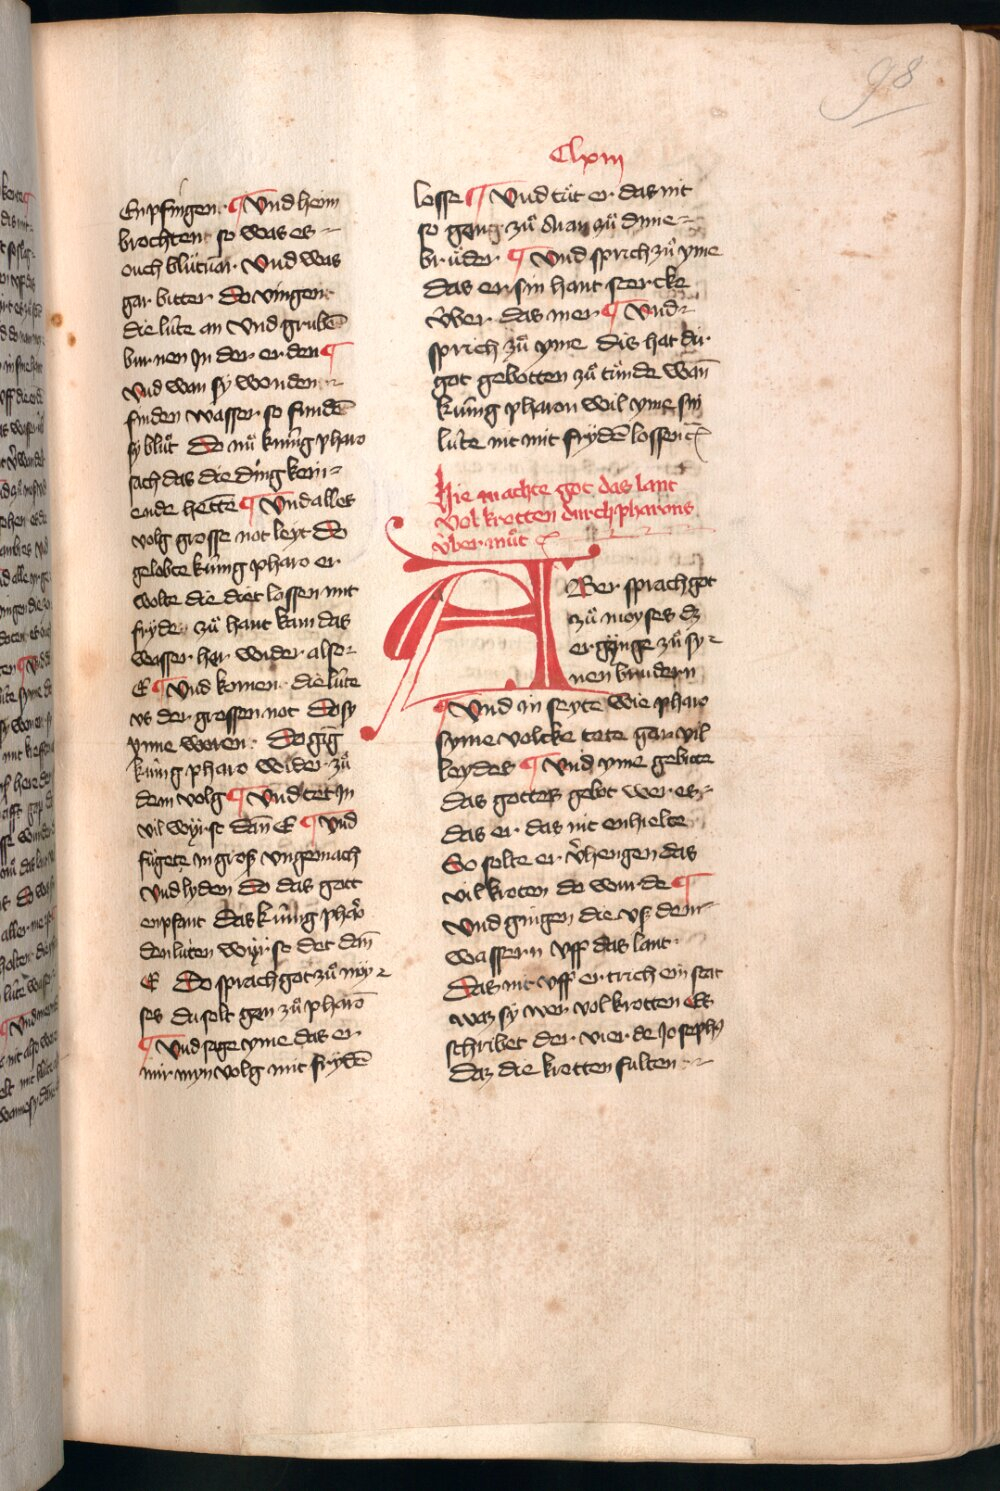 98
Clxiii
Enpfingen ¶ Vnd heim
brochten so was es
ouch blůt var Vnd was
gar bitter Do vingen
die lúte an Vnd grubē
burnen Jn der erden ¶
Vnd wan sy wonden
finden wasser so fundē
sy blůt Do nů kúnig pharo
sach das die ding kein
ende hette ¶ Vnd alles
volg grosse not leyt Do
gelobte kúnig pharo er
wolte die diet lossen mit
fryde zů hant kam das
wasser her wider also
E ¶ Vnd komen die lúte
vs der grossen not Do sy
ynne woren Do gīg
kúnig pharo wider zů
dem volg ¶ Vnd tet Jn
vil wyrst dan̄ E ¶ Vnd
fůgete in groß vngemach
Vnd lyden Do das gott
enpfant Das kúnig pharo
den lúten wyrse det dan̄
E Do sprach got zů moy
ses du solt gan zů pharō
¶ Vnd sage yme das er
mir myn volg mit frydē
losse ¶ Vnd tůt er das nit
so gang zů Aran zů dime
brůder ¶ Vnd sprich zů yme
das er sin hant stercke
v́ber das mer ¶ Vnd
sprich zů yme dis hat dir
got gebotten zů tůnde wan̄
kúnig pharon wil yme sin
lúte nit mit frydē lossen
Hie machte got das lant
vol krotten durch pharons
v́ber můt
ABer sprach got
zů moyses dz
er gynge zů sy
nen brudern
¶ Vnd in seyte wie pharo
syme volcke tete gar vil
leydes ¶ Vnd yme gebitte
das gottes gebot wer es
das er das nit enhielte
So solte er v́hengen das
vil kroten do wurde ¶
Vnd gingen die vs dem
wassern vff das lant
Das nit vff ertrich ein stat
waz sy wer vol krotten Es
schribet der vierde Josephꝰ
Daz die krotten fulten